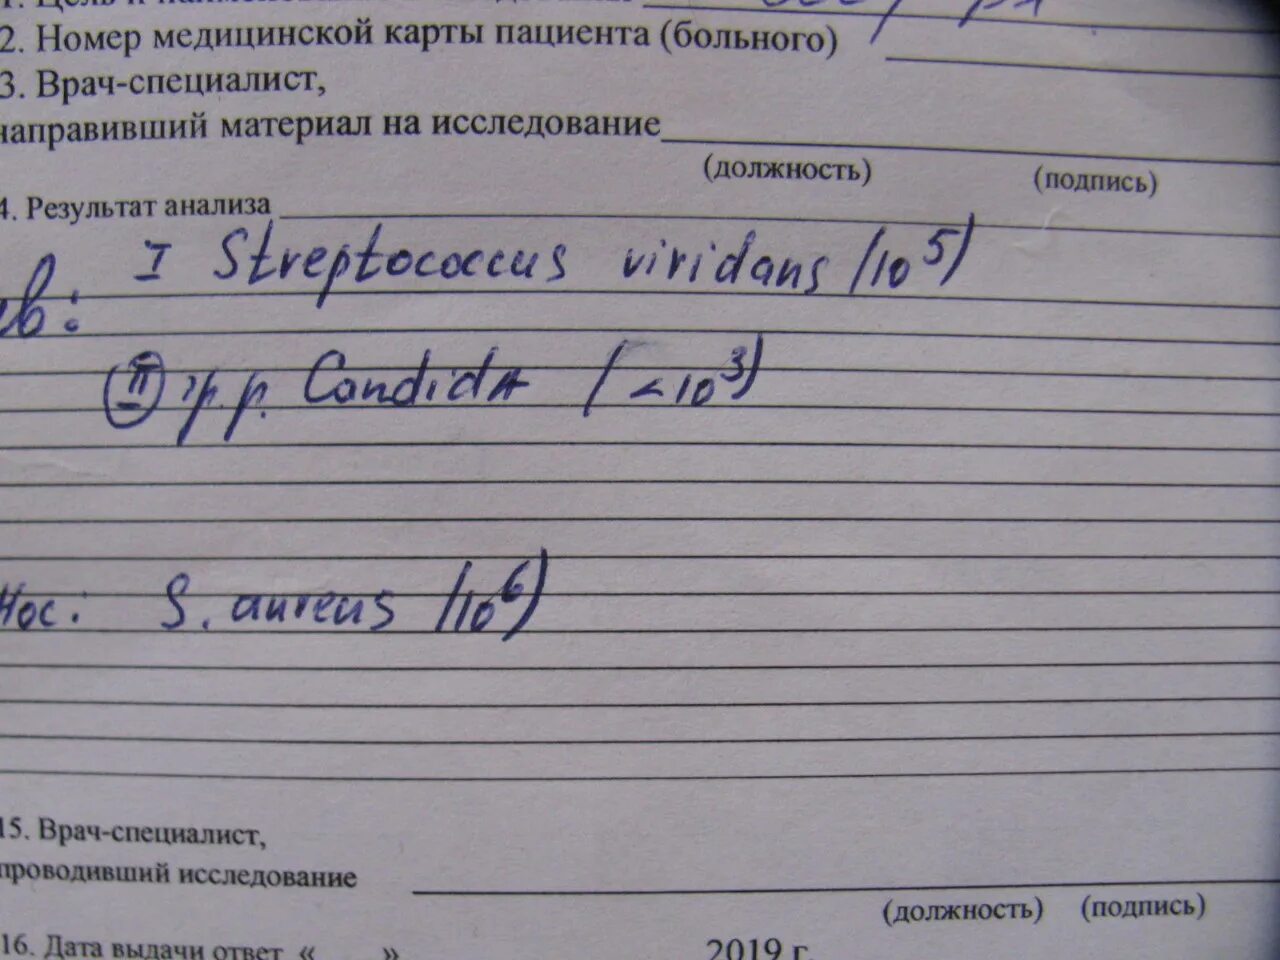 2. Номер медицинской карты пациента (больного)
3. Врач-специалист,
направивший материал на исследование
(должность) (подпись)
4. Результат анализа
I Streptococcus viridans (10^5)
ев:
II гр.р. Candida (<10^3)
Нос: S. aureus (10^6)
15. Врач-специалист,
проводивший исследование
(должность) (подпись)
16. Дата выдачи ответ « » 2019 г.